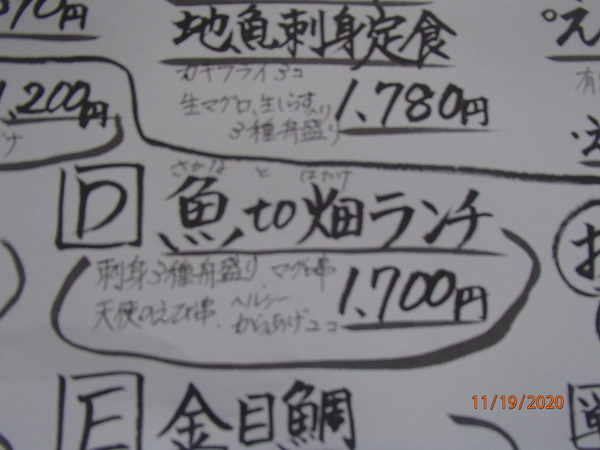 地魚刺身定食
カキフライ3コ
生マグロ、生しらす入り
3種舟盛り
1,780円
1,200円
D
さかな と はたけ
魚to畑ランチ
刺身3種舟盛り、マグロ串
天使のえび串、ヘルシー
からあげ2コ
1,700円
E
金目鯛
11/19/2020